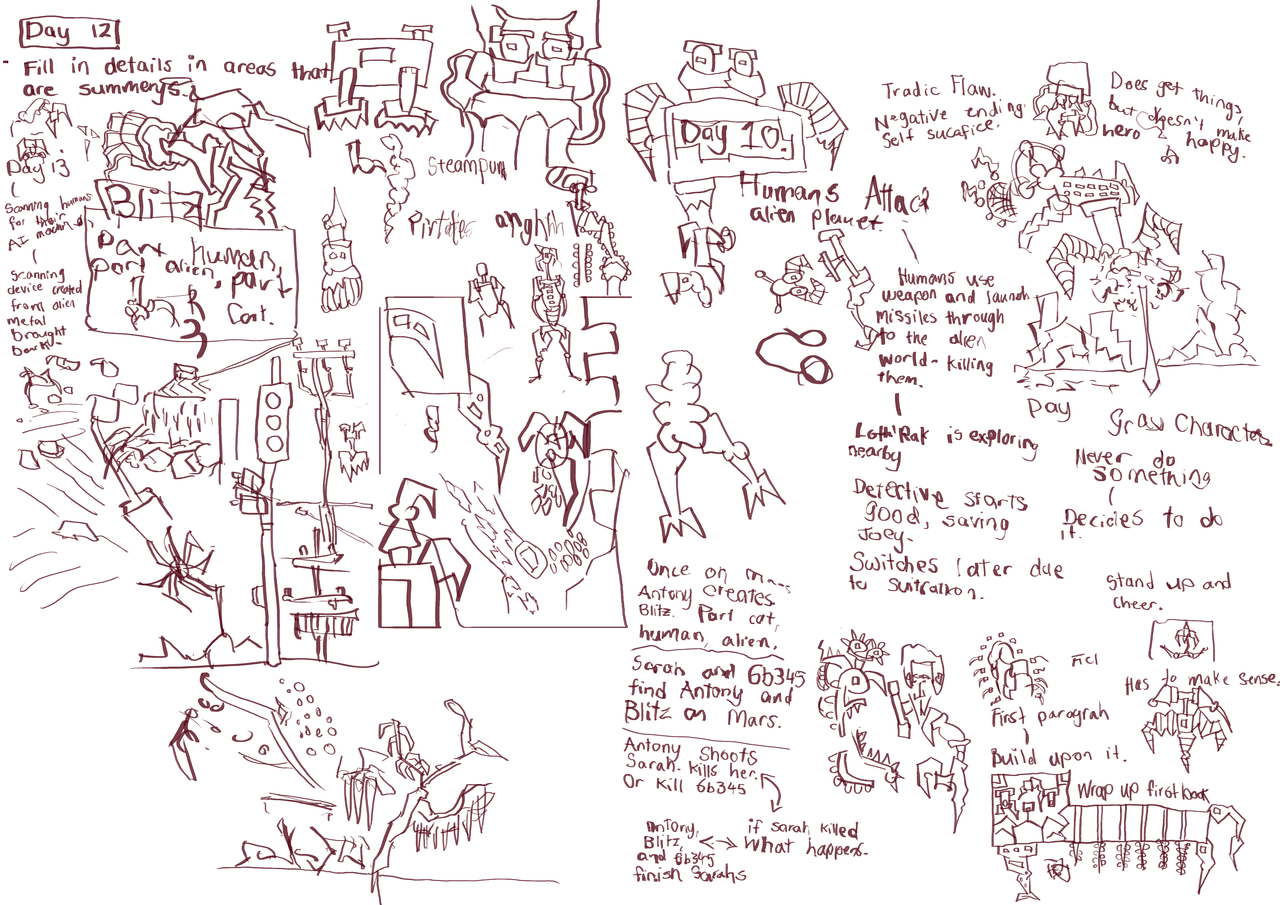 Day 12
- Fill in details in areas that
are summerys.
Day 13
Scanning humans
for their
AI
Scanning
device created
from alien
metal
brought
back.
Blitz
Part human,
Part alien, part
Cat.
Steampun
Pirtates anghhh
Day 10.
Humans Attack
alien planet
Humans use
weapon and launch
missiles through
to the alien
world - killing
them.
Loth'Rak is exploring
nearby
Detective starts
good, saving
Joey.
Switches later due
to
Tradic Flaw.
Negative ending
Self sucafice.
Does get things,
but doesn't make
hero happy.
Day
Gray Character
Never do
something
Decides to do
it.
Stand up and
Cheer.
Has to make sense.
First paragrah
Build upon it.
Wrap up first book
Once on
Antony creates
Blitz. Part cat,
human, alien.
Sarah and 6b345
find Antony and
Blitz on Mars.
Antony Shoots
Sarah. kills her.
Or kill 6b345
if sarah killed
What happens.
Antony,
Blitz,
and 6b345
finish Sarahs